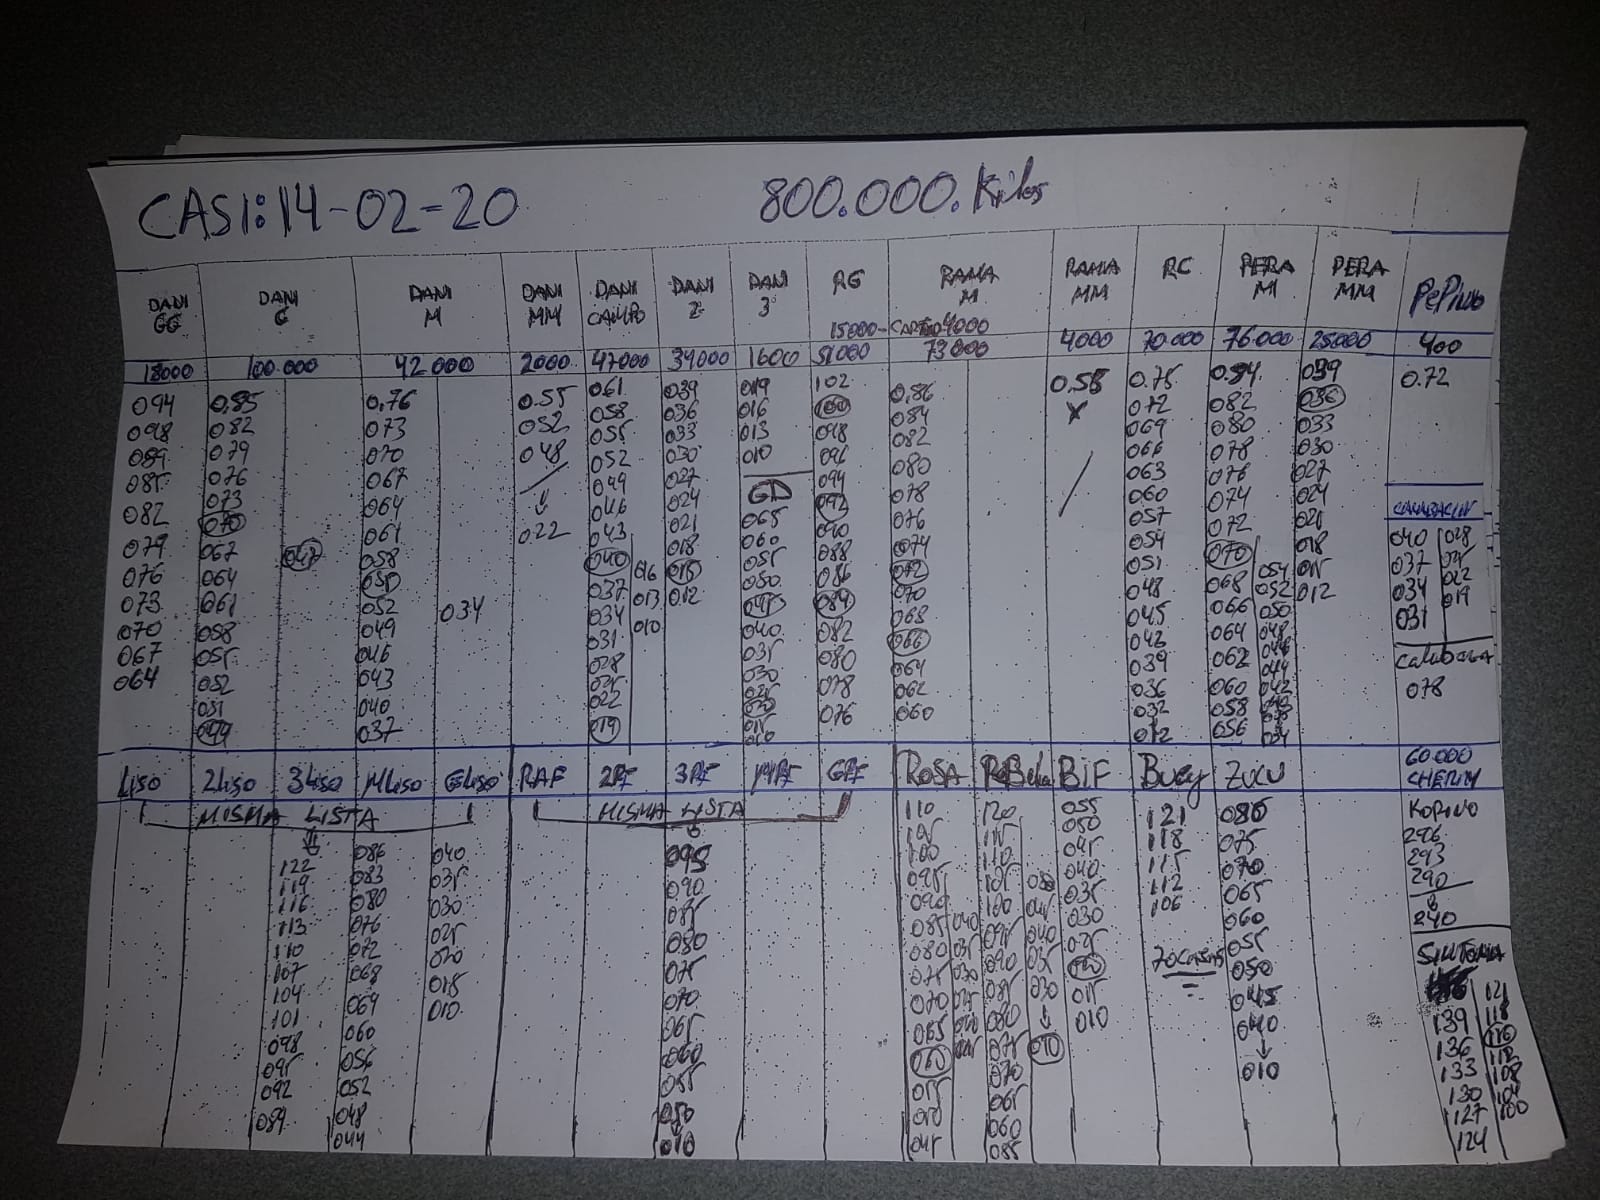 CASI: 14-02-20 800.000. Kilos
DANI GG DANI G DANI M DANI MM DANI CAMPO DANI 2 DANI 3 RG RAMA M RAMA MM RC PERA M PERA MM PePino
15000-CARTRO 4000
18000 100.000 42000 2000 47000 34000 1600 51000 73000 4000 70.000 76.000 25000 400
094 0,85 0,76 0.55 061 039 019 102 0,86 0.58 0.75 0.84 039 0.72
098 082 073 052 058 036 016 100 084 072 082 036
089 079 070 048 055 033 013 098 082 069 080 033
085 076 067 052 030 010 096 080 066 078 030
082 073 064 022 049 027 GD 094 078 063 076 027
079 070 061 046 024 065 092 076 060 074 024 CALABACIN
076 067 047 058 043 021 060 090 074 057 072 021 040 028
073 064 055 040 018 055 088 072 054 070 018 037 025
070 061 052 034 037 016 015 050 086 070 051 068 054 015 034 022
067 058 049 034 013 012 045 084 068 048 066 052 012 031 019
064 055 046 031 010 040 082 066 045 064 050
052 043 028 035 080 064 042 062 048 CALABAZA
051 040 025 030 078 062 039 060 046 078
049 037 022 025 076 060 036 058 044
019 020 032 056 042
015 012
010
Liso 2Liso 3Liso MLiso GLiso RAF 2RF 3RF MRF GRF ROSA RoBola BiF Bucy ZUCU 60.000 CHERRY
MISMA LISTA MISMA LISTA
122 086 040 095 110 120 055 121 080 KOPINO
119 083 035 090 105 115 050 118 075 296
116 080 030 085 100 110 045 115 070 293
113 076 025 080 095 105 050 040 112 065 290
110 072 020 075 090 100 045 035 106 060 240
107 068 015 070 085 040 095 040 030 055
104 064 010 065 080 035 090 035 025 70 cajas 050 SINTONIA
101 060 060 075 030 085 030 020 045 121
098 056 055 070 025 080 010 015 040 139 118
095 052 050 065 020 075 010 010 136 116
092 048 010 060 015 070 133 112
089 044 055 065 130 108
050 060 127 104
045 055 124 100